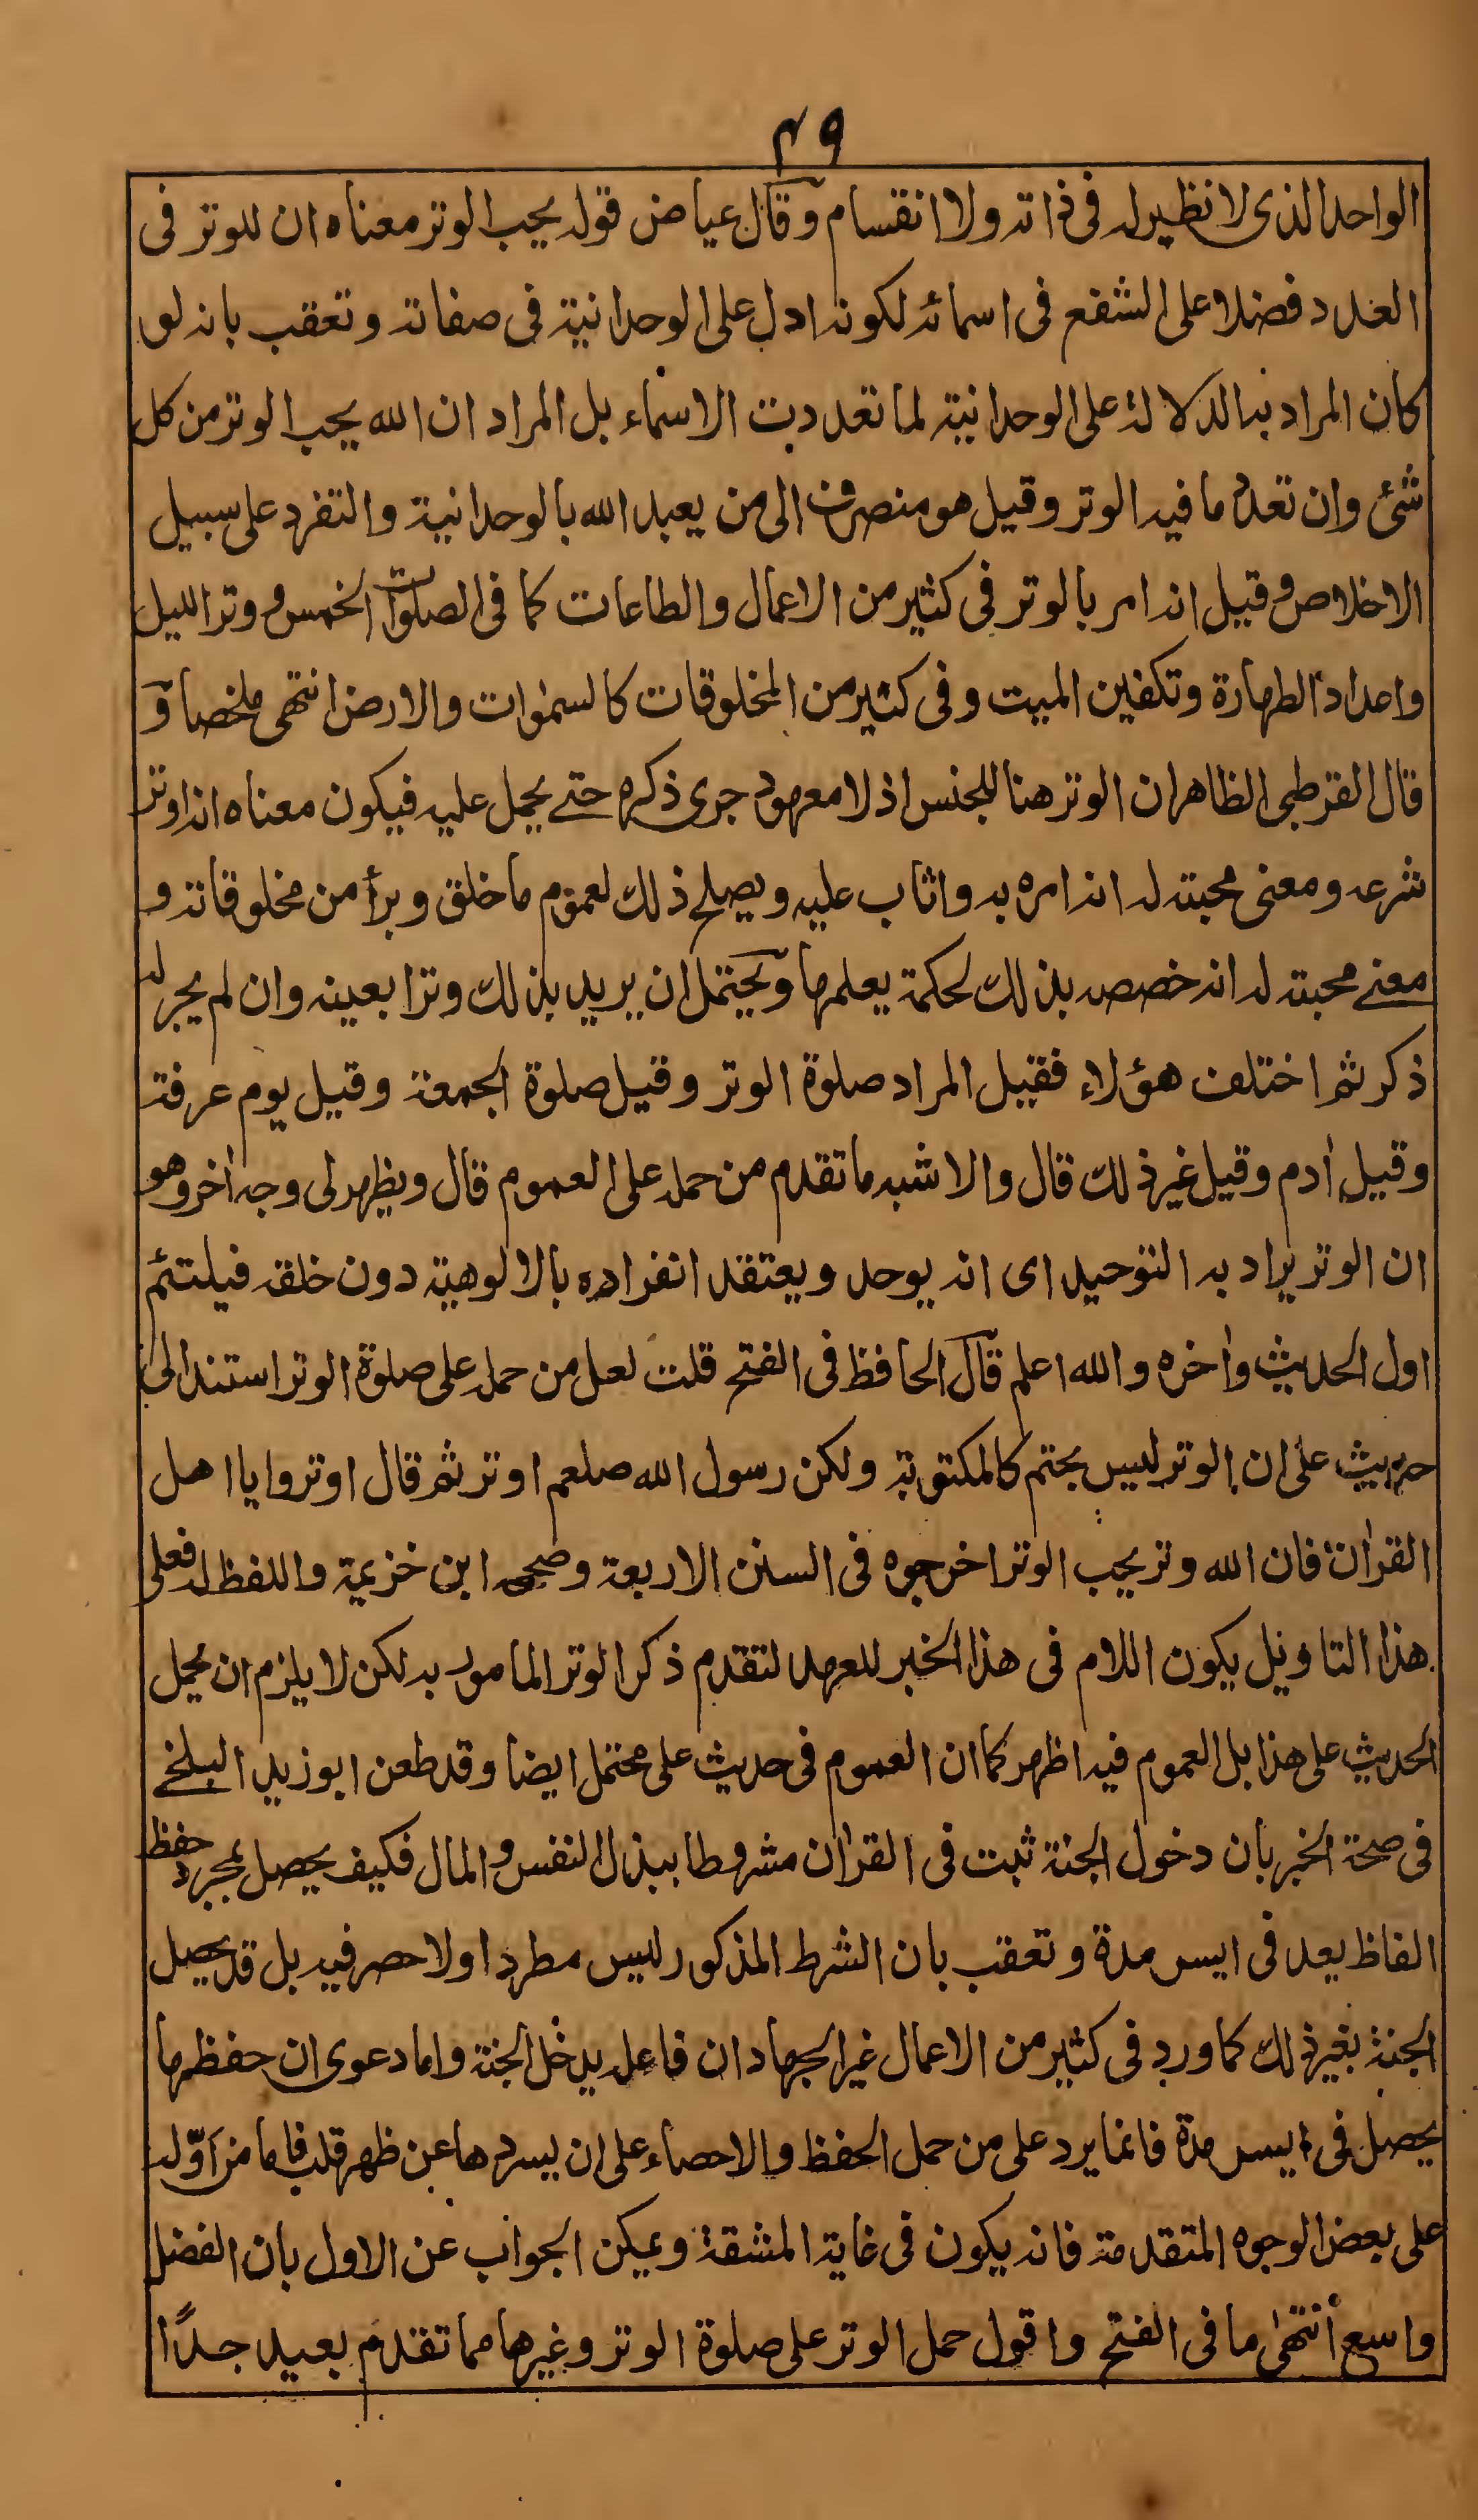 ٤٩
الواحد الذى لا نظير له فى ذاته ولا انقسام وقال عياض قوله يحب الوتر معناه ان للوتر فى
العدد فضلا على الشفع فى اسمائه لكونه ادل على الوحدانية فى صفاته وتعقب بانه لو
كان المراد به الدلالة على الوحدانية لما تعددت الاسماء بل المراد ان الله يحب الوتر من كل
شئ وان تعدد ما فيه الوتر وقيل هو منصرف الى من يعبد الله بالوحدانية والتفرد على سبيل
الاخلاص وقيل انه امر بالوتر فى كثير من الاعمال والطاعات كما فى الصلوات الخمس ووتر الليل
واعداد الطهارة وتكفين الميت وفى كثير من المخلوقات كالسمٰوات والارض انتهى ملخصا و
قال القرطبى الظاهر ان الوتر هنا للجنس اذ لا معهود جرى ذكره حتے يحمل عليه فيكون معناه انه وتر
شرعه ومعنى محبته له انه امره به واثاب عليه ويصلح ذلك لعموم ما خلق وبرأ من مخلوقاته و
معنے محبته له انه خصصه بذلك لحكمة يعلمها ويحتمل ان يريد بذلك وترا بعينه وان لم يجر له
ذكر ثم اختلف هؤلاء فقيل المراد صلوة الوتر وقيل صلوة الجمعة وقيل يوم عرفة
وقيل اٰدم وقيل غير ذلك قال والاشبه ما تقدم من حمله على العموم قال ويظهر لى وجه اٰخر وهو
ان الوتر يراد به التوحيد اى انه يوحد ويعتقد انفراده بالالوهية دون خلقه فيلتئم
اول الحديث واٰخره والله اعلم قال الحافظ فى الفتح قلت لعل من حمله على صلوة الوتر استند الى
حديث على ان الوتر ليس بحتم كالمكتوبة ولكن رسول الله صلعم اوتر ثم قال اوتروا يا اهل
القراٰن فان الله وتر يحب الوتر اخرجوه فى السنن الاربعة وصححه ابن خزيمة واللفظ له فعلى
هذا التاويل يكون اللام فى هذا الخبر للعهد لتقدم ذكر الوتر المامور به لكن لا يلزم ان يحمل
الحديث على هذا بل العموم فيه اظهر كما ان العموم فى حديث على محتمل ايضا وقد طعن ابو زيد البلخے
فى صحة الخبر بان دخول الجنة ثبت فى القراٰن مشروطا ببذل النفس والمال فكيف يحصل بمجرد حفظ
الفاظ يعد فى ايسر مدة وتعقب بان الشرط المذكور ليس مطردا ولا حصر فيه بل قد يحصل
الجنة بغير ذلك كما ورد فى كثير من الاعمال غير الجهاد ان فاعله يدخل الجنة واما دعوى ان حفظها
يحصل فى ايسر مدة فانما يرد على من حمل الحفظ والاحصاء على ان يسردها عن ظهر قلب فاما من اوّله
على بعض الوجوه المتقدمة فانه يكون فى غاية المشقة ويمكن الجواب عن الاول بان الفضل
واسع انتهٰى ما فى الفتح واقول حمل الوتر على صلوة الوتر وغيرها مما تقدم بعيد جدًّا